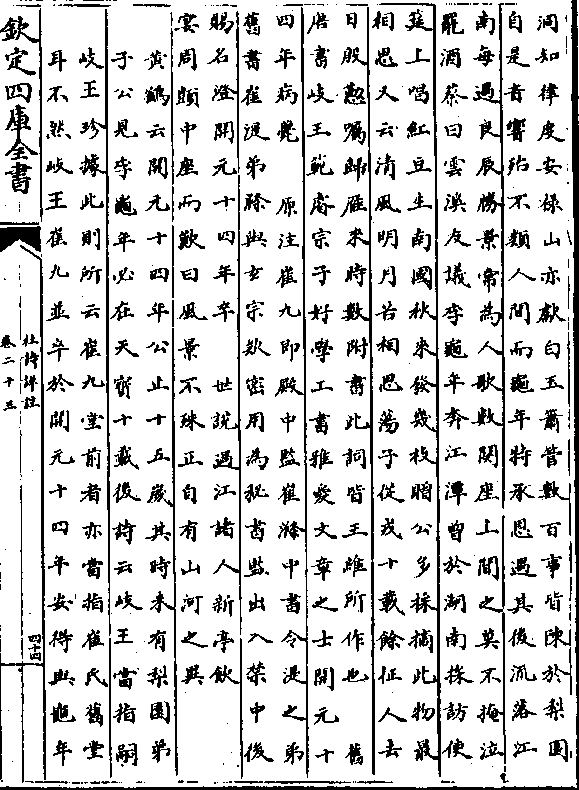 洞知律度安祿山亦獻白玉簫管數百事皆陳於梨園
自是音響殆不類人間而龜年特承恩遇其後流落江
南每過良辰勝景常為人歌數闋座上聞之莫不掩泣
罷酒蔡曰雲溪友議李龜年奔江潭曾於湖南採訪使
筵上唱紅豆生南國秋來發幾枝贈公多採摘此物最
相思又云清風明月苦相思蕩子從戎十載餘征人去
日殷勤囑歸雁來時數附書此詞皆王維所作也 舊
唐書岐王範睿宗子好學工書雅愛文章之士開元十
四年病薨 原注崔九即殿中監崔滌中書令湜之弟
舊書崔湜弟滌與玄宗欵密用為秘書監出入禁中後
賜名澄開元十四年卒 世說過江諸人新亭飲
宴周顗中座而歎曰風景不殊正自有山河之異
黃鶴云開元十四年公止十五歲其時未有梨園弟
子公見李龜年必在天寶十載後詩云岐王當指嗣
岐王珍據此則所云崔九堂前者亦當指崔氏舊堂
耳不然岐王崔九並卒於開元十四年安得與龜年
欽定四庫全書
杜詩詳註
卷二十三
四十四